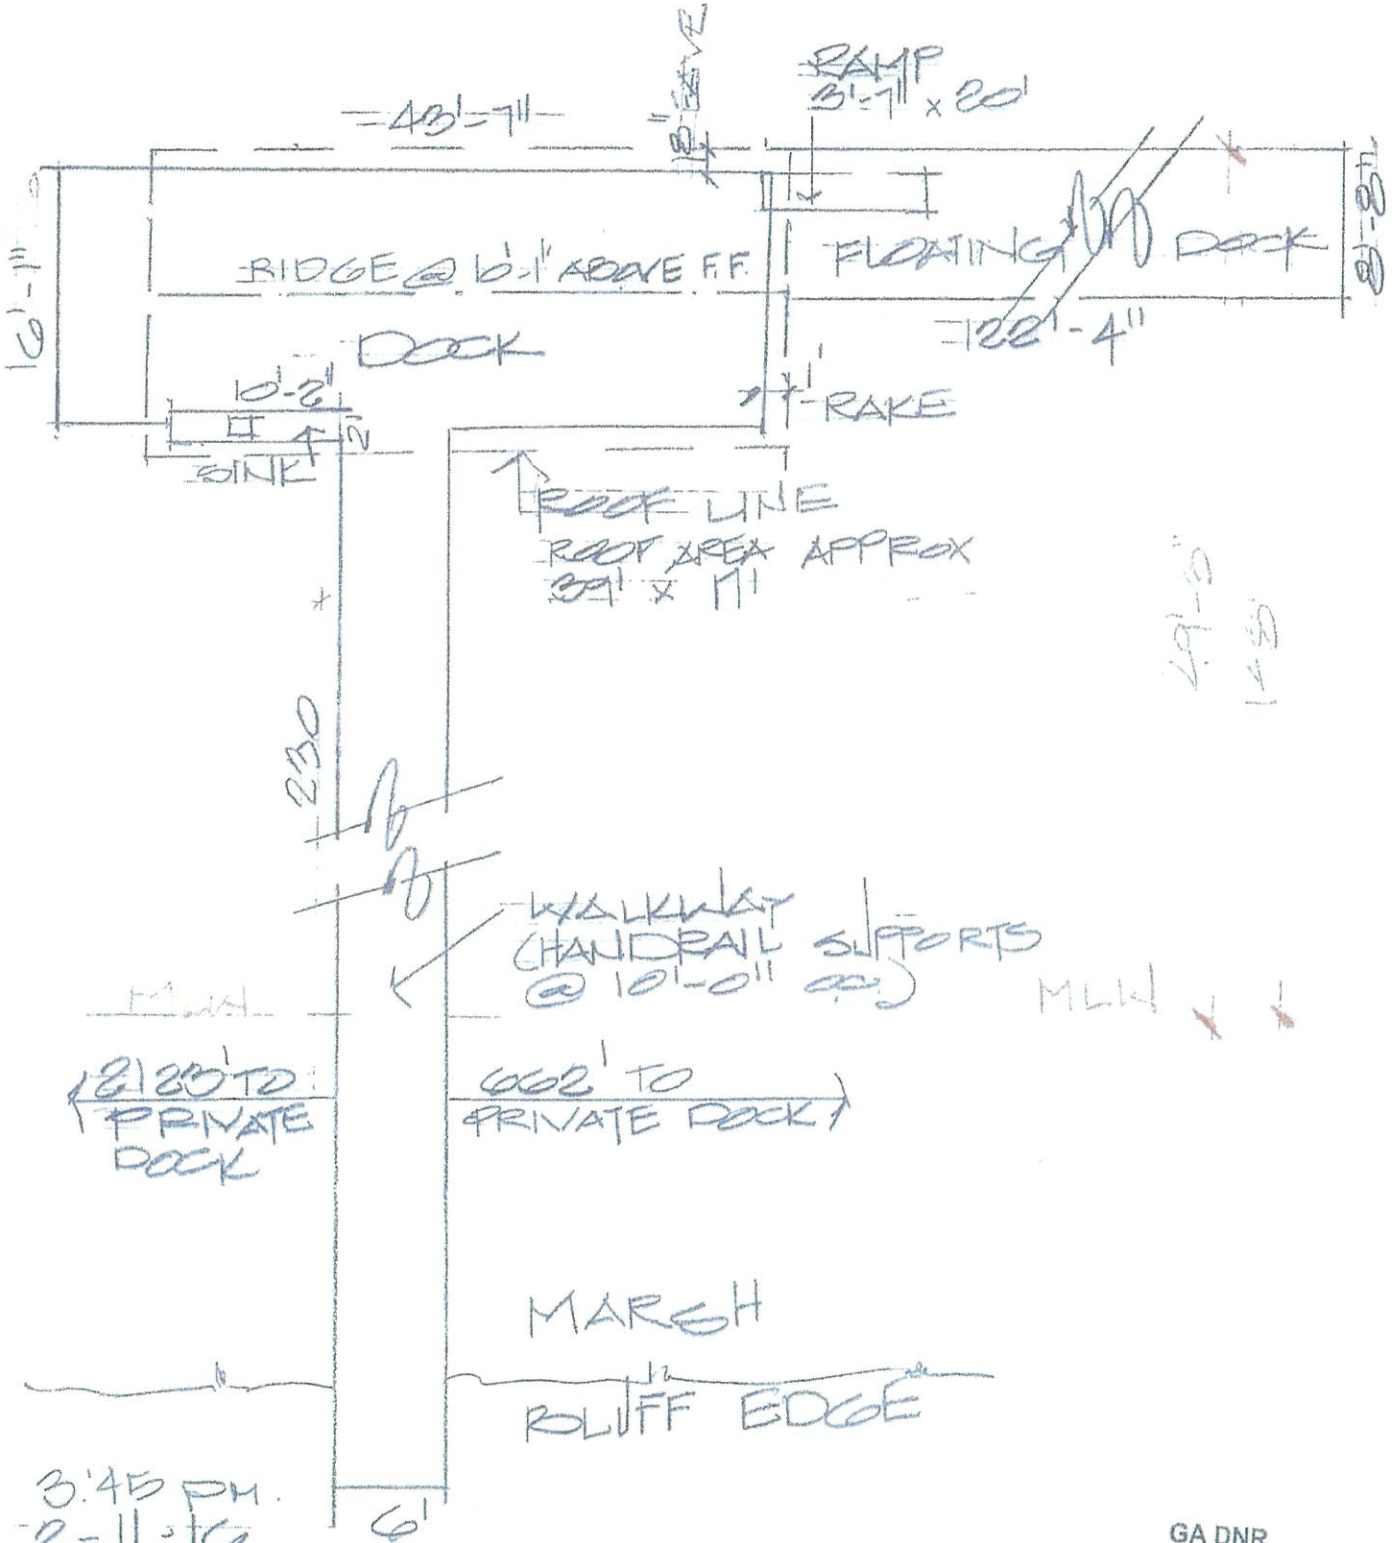 18" EAVE
RAMP
3'-7" x 20'
43'-7"
16'-1"
8'-8"
RIDGE @ 10'-1" ABOVE F.F.
FLOATING DOCK
122'-4"
DOCK
10'-2"
2'
SINK
1' RAKE
ROOF LINE
ROOF AREA APPROX
39' x 17'
230
WALKWAY
(HANDRAIL SUPPORTS
@ 10'-0" OC)
MLW
2123' TO
PRIVATE
DOCK
662' TO
PRIVATE DOCK
MARSH
BLUFF EDGE
3:45 PM.
6'
GA DNR